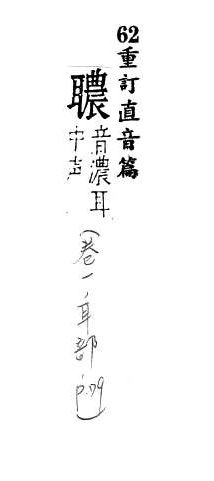 62重訂直音篇
𦗳
音濃耳
中声
(卷一,耳部 p.79)